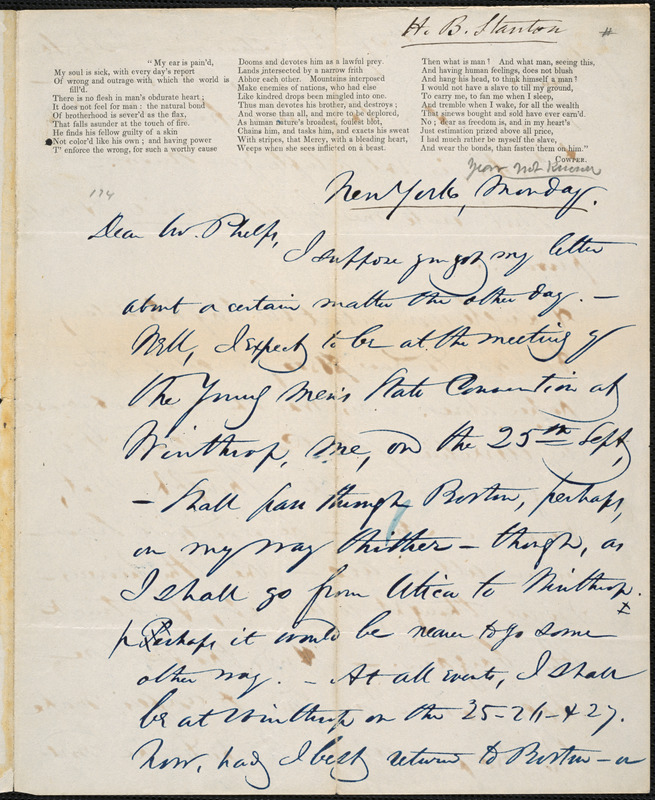 H. B. Stanton #
"My ear is pain'd,
My soul is sick, with every day's report
Of wrong and outrage with, which the world is
fill'd.
There is no flesh in man's obdurate heart;
It does not feel for man: the natural bond
Of brotherhood is sever'd as the flax,
That falls asunder at the touch of fire.
He finds his fellow guilty of a skin
Not color'd like his own; and having power
T' enforce the wrong, for such a worthy cause
Dooms and devotes him as a lawful prey.
Lands intersected by a narrow frith
Abhor each other. Mountains interposed
Make enemies of nations, who had else
Like kindred drops been mingled into one.
Thus man devotes his brother, and destroys;
And worse than all, and more to be deplored,
As human nature's broadest, foulest blot,
Chains him, and tasks him, and exacts his sweat
With stripes, that Mercy, with a bleeding heart,
Weeps when she sees inflicted on a beast.
Then what is man? And what man, seeing this,
And having human feelings, does not blush
And hang his head, to think himself a man?
I would not have a slave to till my ground,
To carry me, to fan me when I sleep,
And tremble when I wake, for all the wealth
That sinews bought and sold have ever earn'd.
No; dear as freedom is, and in my heart's
Just estimation prized above all price,
I had much rather be myself the slave,
And wear the bonds, than fasten them on him."
COWPER.
Year not known
174
New York, Monday.
Dear Mr. Phelps,
I suppose you got my letter
about a certain matter the other day. —
Well, I expect to be at the meeting of
the Young Men's State Convention at
Winthrop, Me, on the 25th Sept,
— shall pass through Boston, perhaps,
on my way thither — though, as
I shall go from Utica to Winthrop.
Perhaps it would be nearer to go some
other way. — At all events, I shall
be at Winthrop on the 25-26-& 27.
Now, had I best return to Boston — or